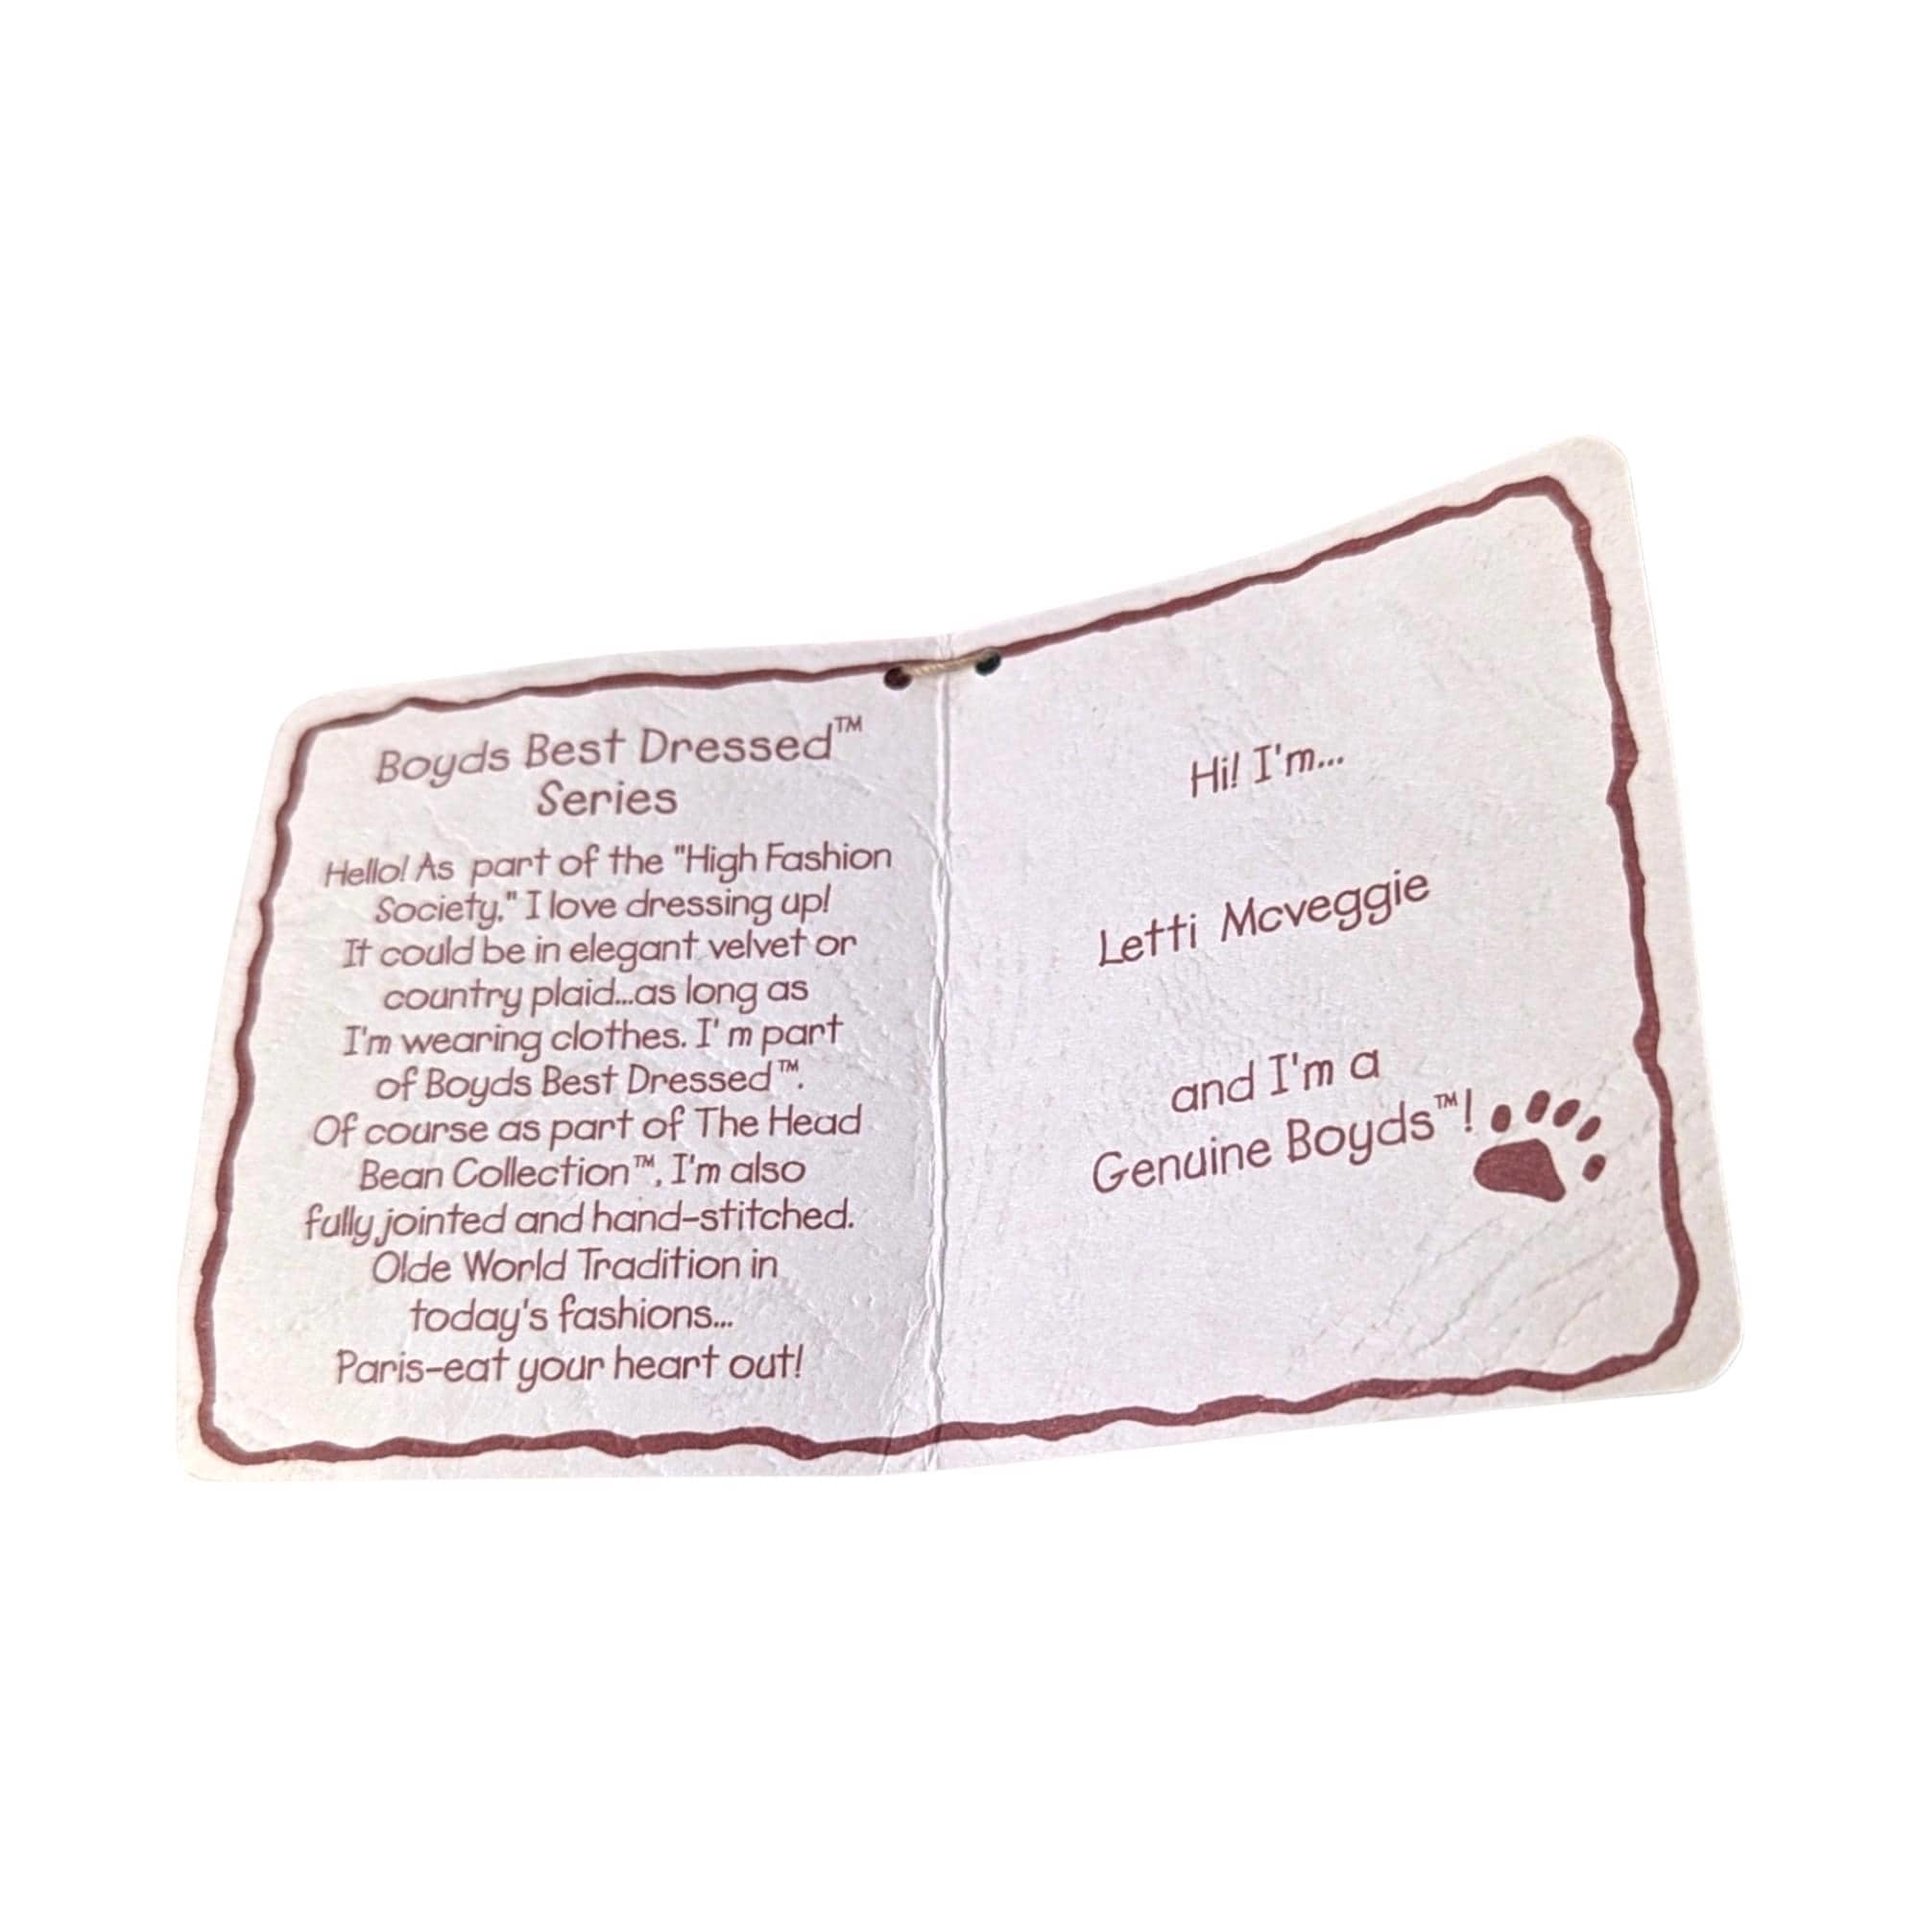 Boyds Best Dressed™
Series
Hello! As part of the "High Fashion
Society," I love dressing up!
It could be in elegant velvet or
country plaid...as long as
I'm wearing clothes. I' m part
of Boyds Best Dressed™.
Of course as part of The Head
Bean Collection™, I'm also
fully jointed and hand-stitched.
Olde World Tradition in
today's fashions...
Paris-eat your heart out!
Hi! I'm...
Letti Mcveggie
and I'm a
Genuine Boyds™!